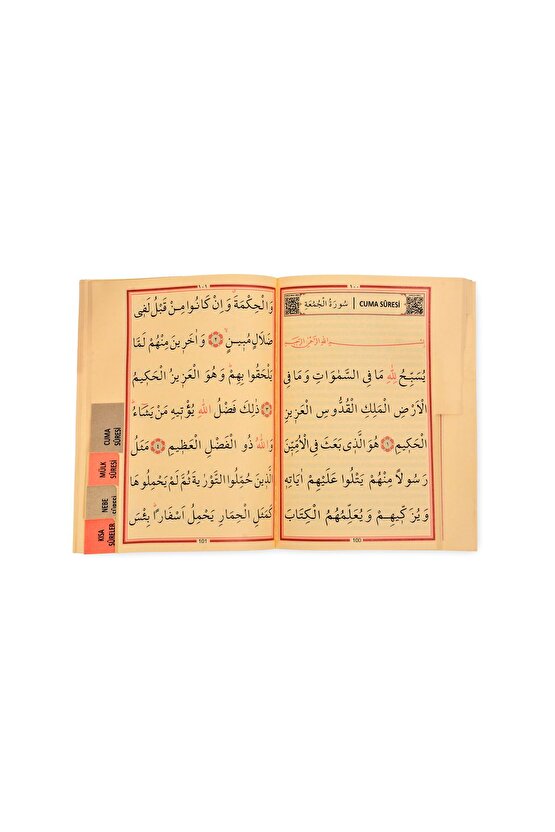 ١٠٠
سُورَةُ الْجُمُعَةِ | CUMA SÛRESİ
يُسَبِّحُ لِلّٰهِ مَا فِي السَّمٰوَاتِ وَمَا فِي
الْاَرْضِ الْمَلِكِ الْقُدُّوسِ الْعَزِيزِ
الْحَكِيمِ ﴿١﴾ هُوَ الَّذِي بَعَثَ فِي الْاُمِّيّٖنَ
رَسُولًا مِنْهُمْ يَتْلُوا عَلَيْهِمْ اٰيَاتِهِ
وَيُزَكِّيهِمْ وَيُعَلِّمُهُمُ الْكِتَابَ
100
١٠١
وَالْحِكْمَةَ وَاِنْ كَانُوا مِنْ قَبْلُ لَفِي
ضَلَالٍ مُبِينٍ ﴿٢﴾ وَاٰخَرِينَ مِنْهُمْ لَمَّا
يَلْحَقُوا بِهِمْ وَهُوَ الْعَزِيزُ الْحَكِيمُ
﴿٣﴾ ذٰلِكَ فَضْلُ اللّٰهِ يُؤْتِيهِ مَنْ يَشَاءُ
وَاللّٰهُ ذُو الْفَضْلِ الْعَظِيمِ ﴿٤﴾ مَثَلُ
الَّذِينَ حُمِّلُوا التَّوْرٰيةَ ثُمَّ لَمْ يَحْمِلُوهَا
كَمَثَلِ الْحِمَارِ يَحْمِلُ اَسْفَارًا بِئْسَ
101
CUMA
SÛRESİ
MÜLK
SÛRESİ
NEBE
KISA
SÛRELER